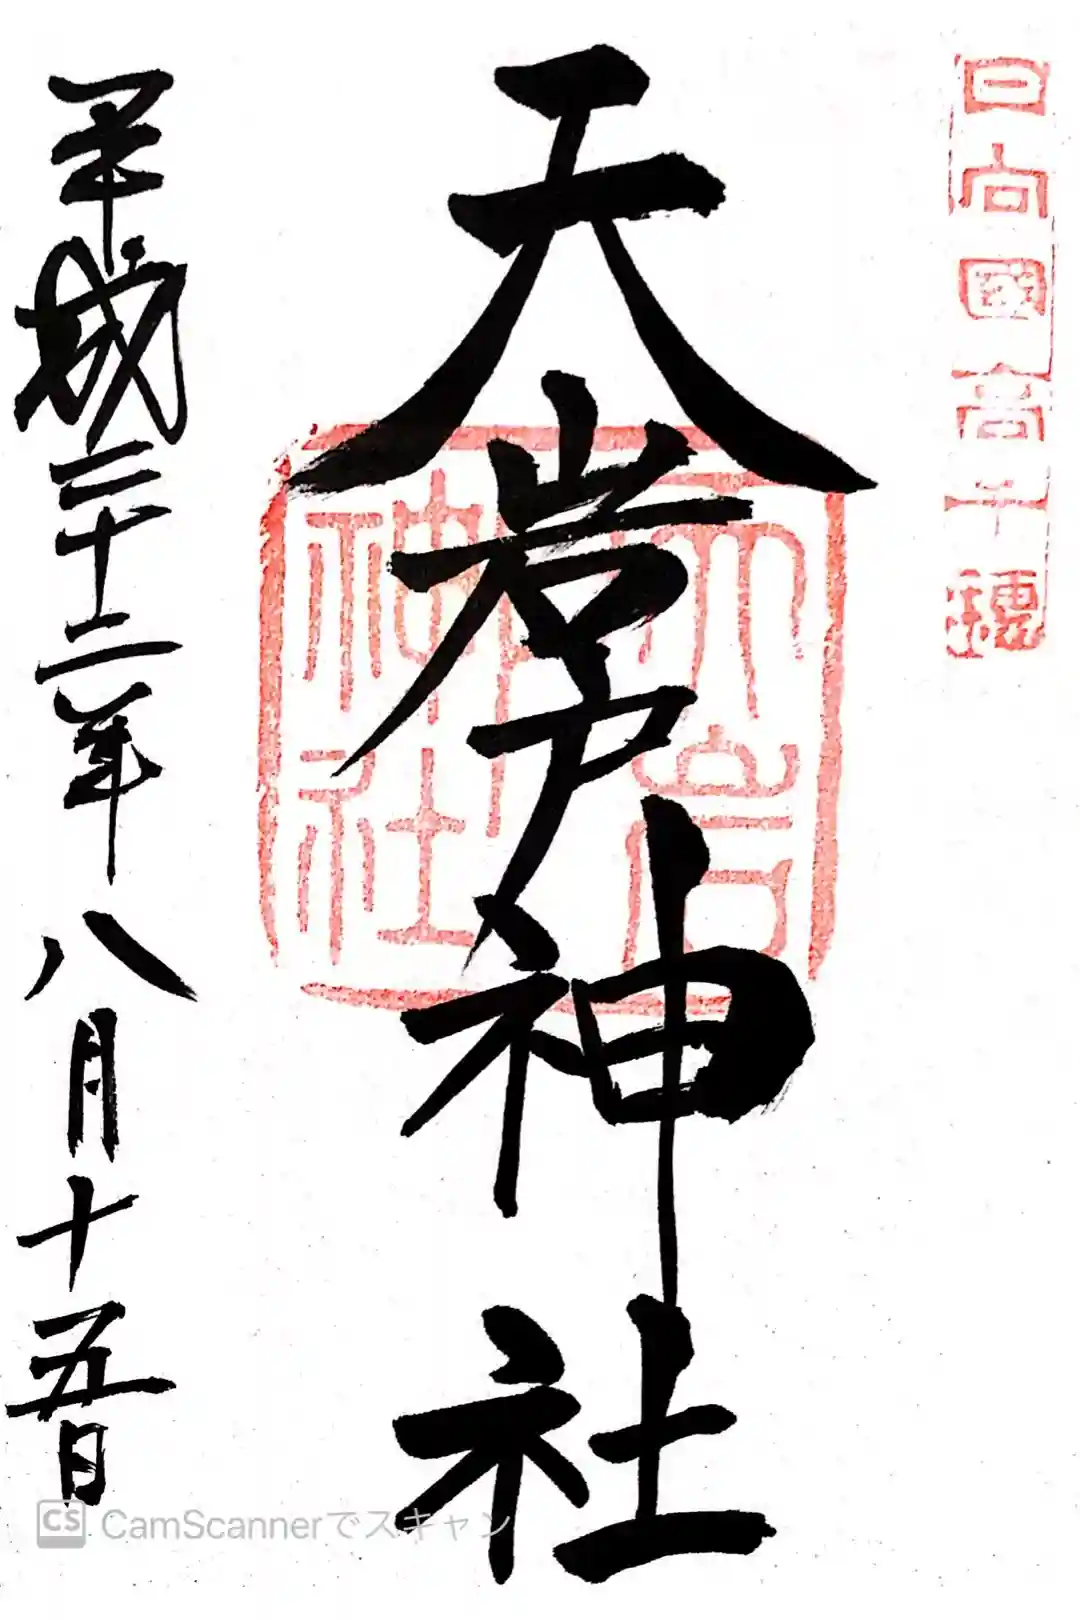 日向國高千穗
天岩戸神社
天岩神社
平成二十二年八月十五日
CS CamScannerでスキャン